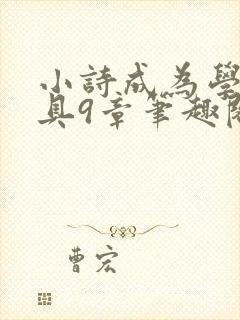 小詩成為學
具9章筆趣閱
曹宏